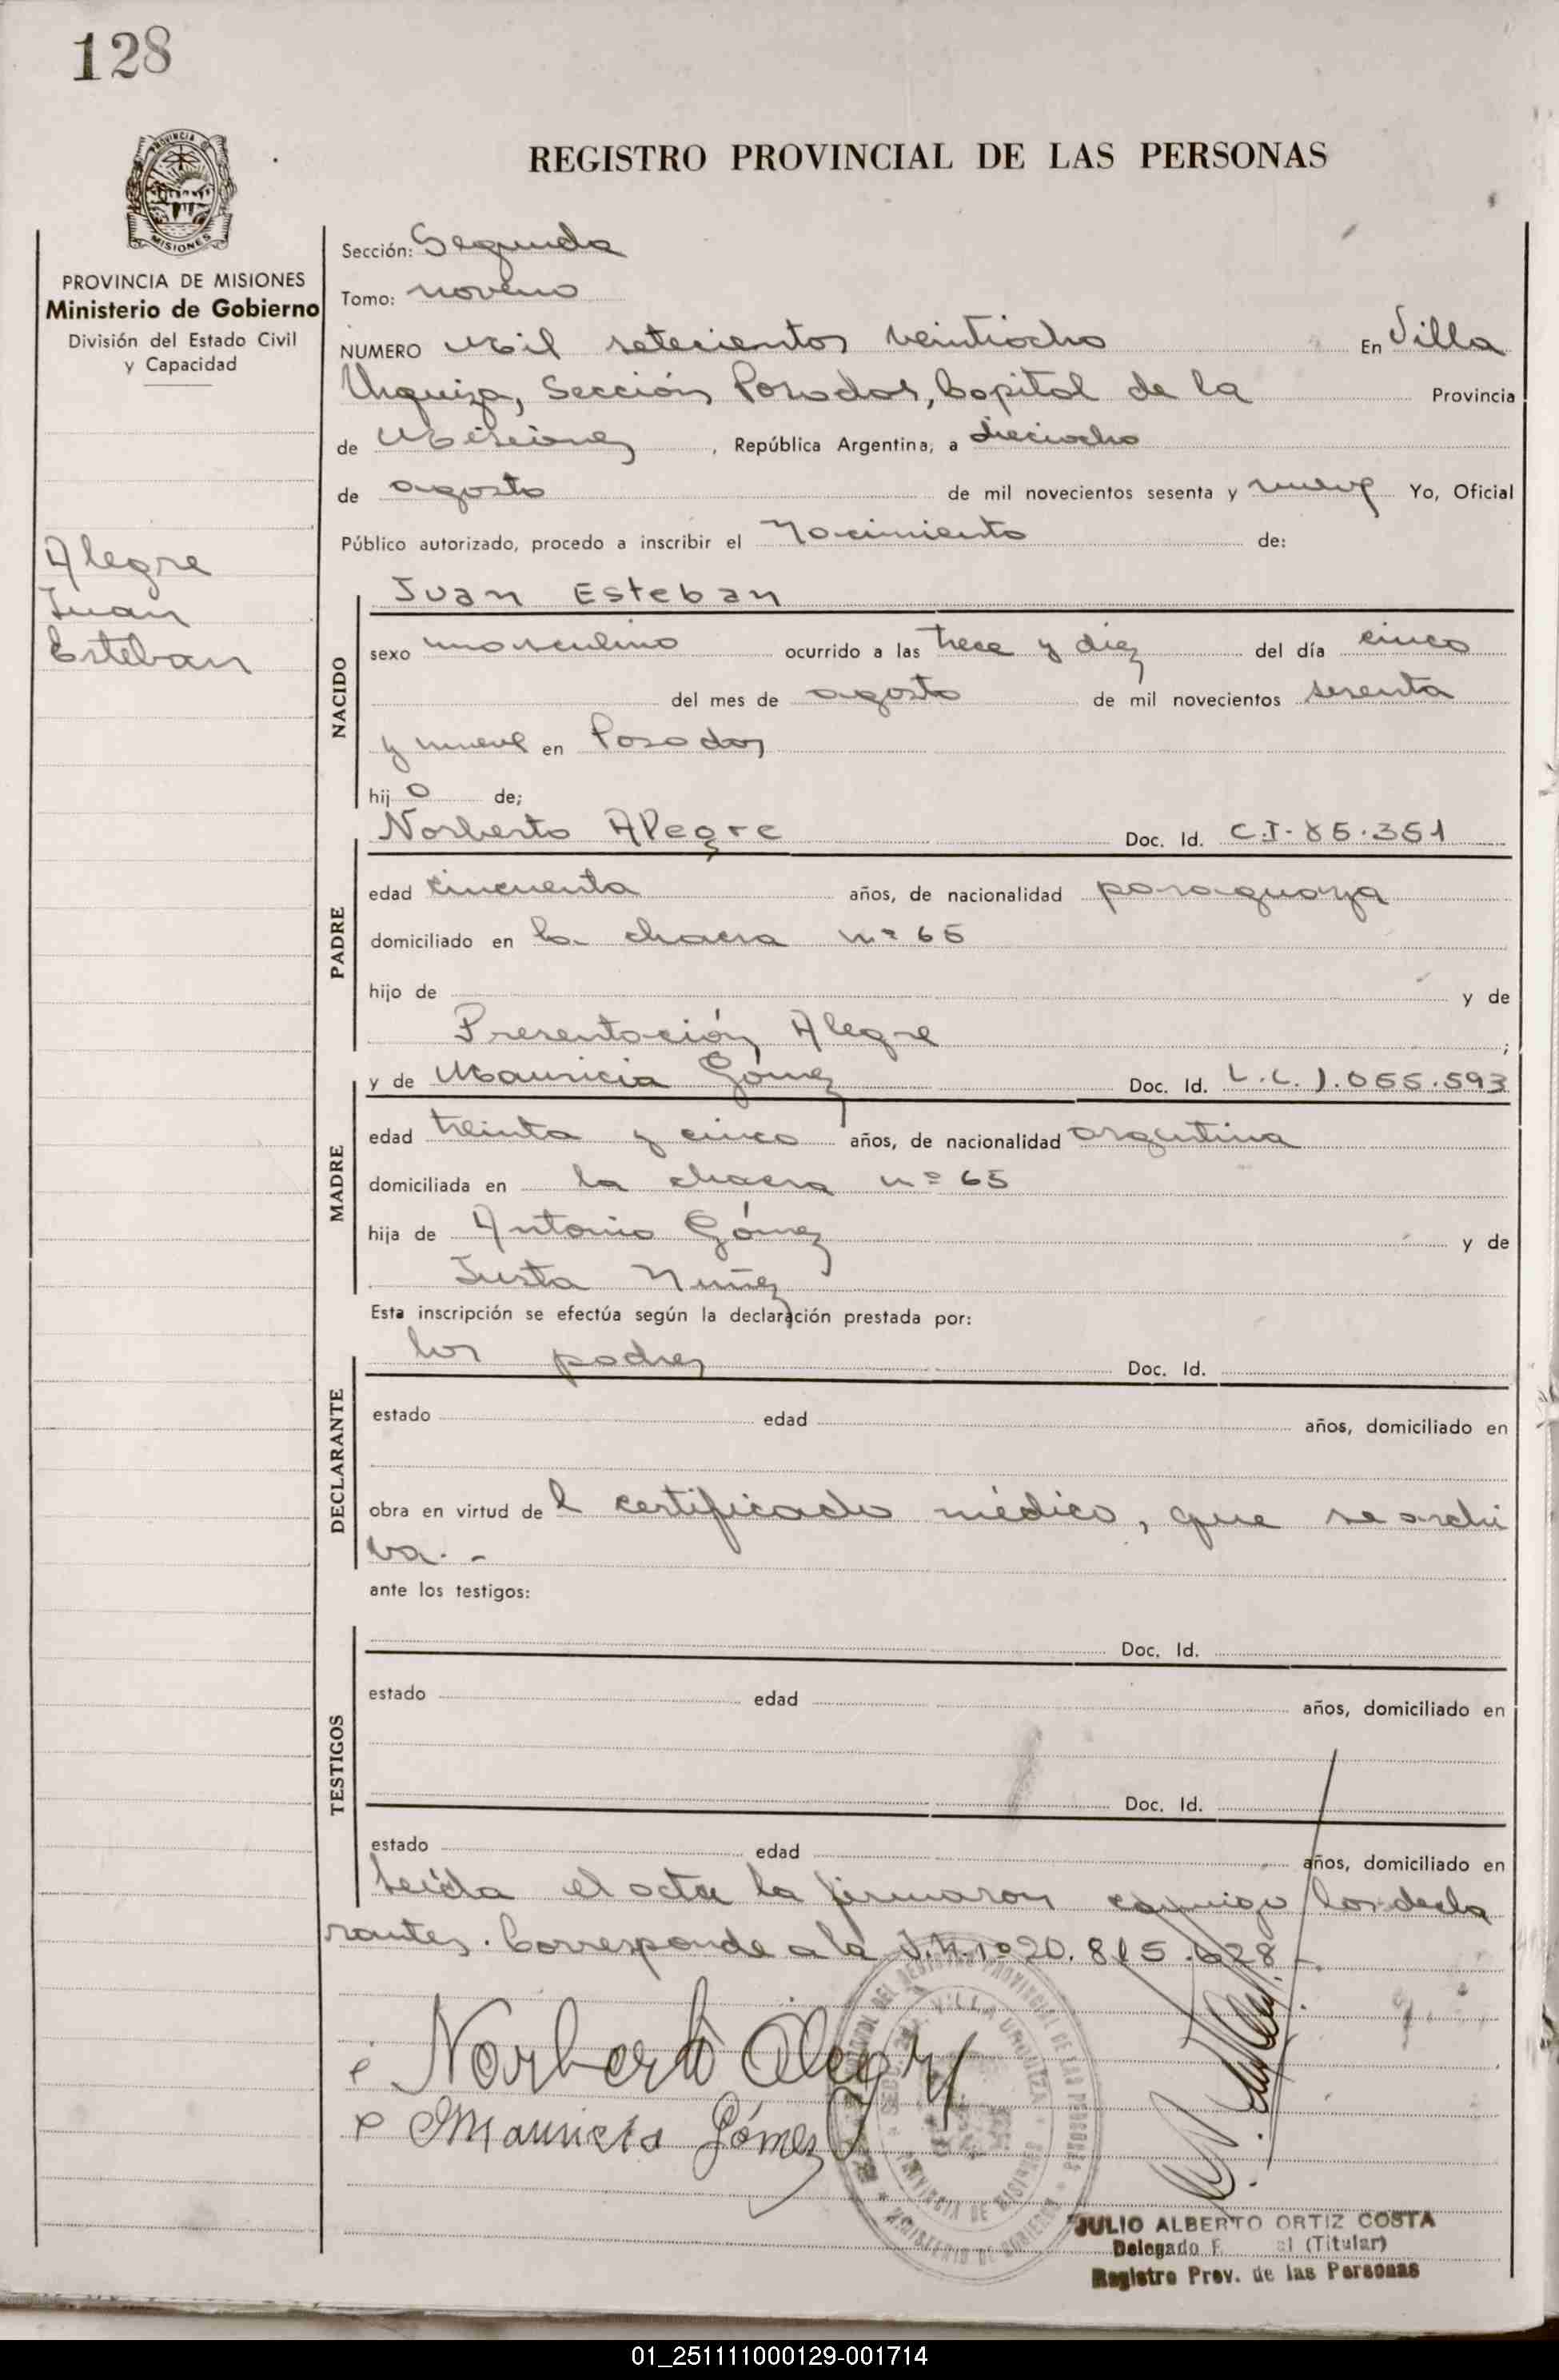 128
PROVINCIA
MISIONES
REGISTRO PROVINCIAL DE LAS PERSONAS
PROVINCIA DE MISIONES
Ministerio de Gobierno
División del Estado Civil
y Capacidad
Alegre
Juan
Esteban
Sección: Segunda
Tomo: noveno
NUMERO Mil setecientos veintiocho En Villa
Urquiza, Sección Posadas, Capital de la Provincia
de Misiones, República Argentina, a dieciocho
de agosto de mil novecientos sesenta y nueve Yo, Oficial
Público autorizado, procedo a inscribir el Nacimiento de:
Juan Esteban
NACIDO
sexo masculino ocurrido a las trece y diez del día cinco
del mes de agosto de mil novecientos sesenta
y nueve en Posadas
hij o de;
Norberto Alegre Doc. Id. C.I. 85.351
PADRE
edad cincuenta años, de nacionalidad paraguaya
domiciliado en la chacra nº 65
hijo de y de
Presentación Alegre ;
y de Mauricia Gómez Doc. Id. L.C. 1.055.593
MADRE
edad treinta y cinco años, de nacionalidad argentina
domiciliada en la chacra nº 65
hija de Antonio Gómez y de
Justa Nuñez
Esta inscripción se efectúa según la declaración prestada por:
los padres Doc. Id.
DECLARANTE
estado edad años, domiciliado en
obra en virtud de l certificado médico, que se archi
va. -
ante los testigos:
Doc. Id.
TESTIGOS
estado edad años, domiciliado en
Doc. Id.
estado edad años, domiciliado en
Leída el acta la firmaron conmigo los decla
rantes. Corresponde a la I.N. nº 20.815.628 -.
Norberto Alegre
Mauricia Gómez
VILLA URQUIZA
PROVINCIA DE MISIONES
MINISTERIO DE GOBIERNO
JULIO ALBERTO ORTIZ COSTA
Delegado (Titular)
Registro Prov. de las Personas
01_251111000129-001714